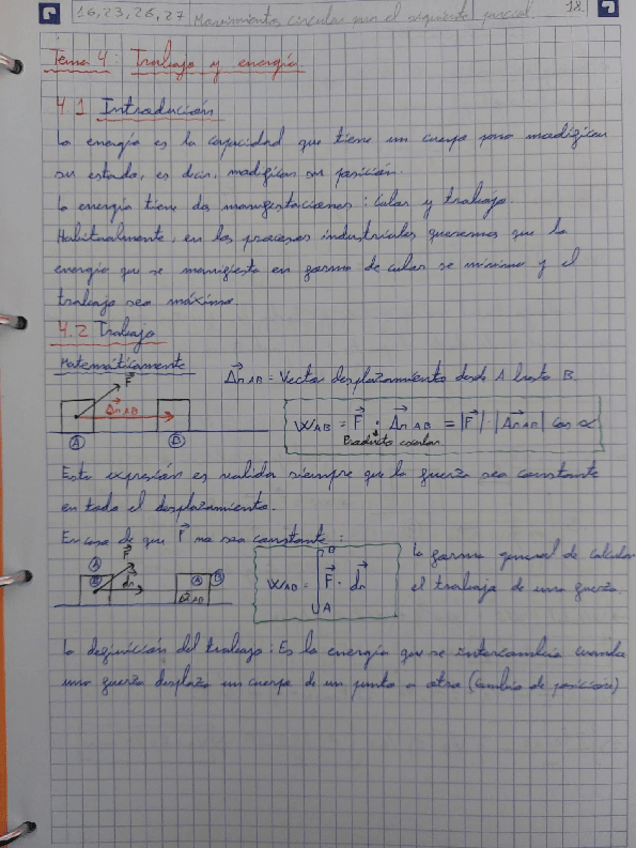 16, 23, 26, 27 Movimientos circular para el siguiente parcial. 18.
Tema 4: Trabajo y energía
4.1 Introducción
La energía es la capacidad que tiene un cuerpo para modificar
su estado, es decir, modificar su posición.
La energía tiene dos manifestaciones: calor y trabajo.
Habitualmente, en los procesos industriales queremos que la
energía que se manifiesta en forma de calor se mínima y el
trabajo sea máximo.
4.2 Trabajo
Matemáticamente
F Δr AB
A B
Δr AB = Vector desplazamiento desde A hasta B.
W AB = F · Δr AB = |F| · |Δr AB| Cos α
Producto escalar
Esta expresión es valida siempre que la fuerza sea constante
en todo el desplazamiento.
En caso de que F no sea constante:
A F dr A B
W AB = ∫ A B F · dr
La forma general de calcular
el trabajo de una fuerza.
La definición del trabajo: Es la energía que se intercambia cuando
una fuerza desplaza un cuerpo de un punto a otro (Cambio de posición)